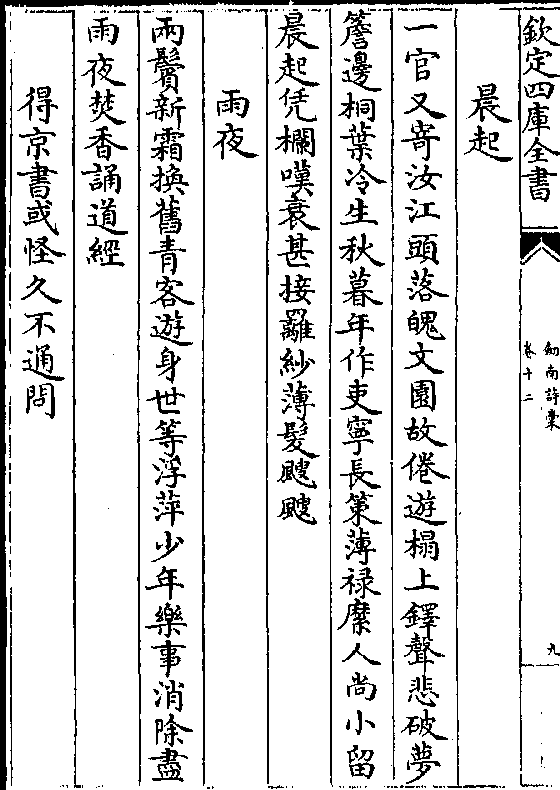 欽定四庫全書
劍南詩稾
卷十二
九
晨起
一官又寄汝江頭落魄文園故倦遊榻上鐸聲悲破夢
簷邊桐葉冷生秋暮年作吏寧長策薄禄縻人尚小留
晨起凭欄嘆衰甚接䍦紗薄髮颼颼
雨夜
兩鬢新霜換舊青客遊身世等浮萍少年樂事消除盡
雨夜焚香誦道經
得京書或怪久不通問